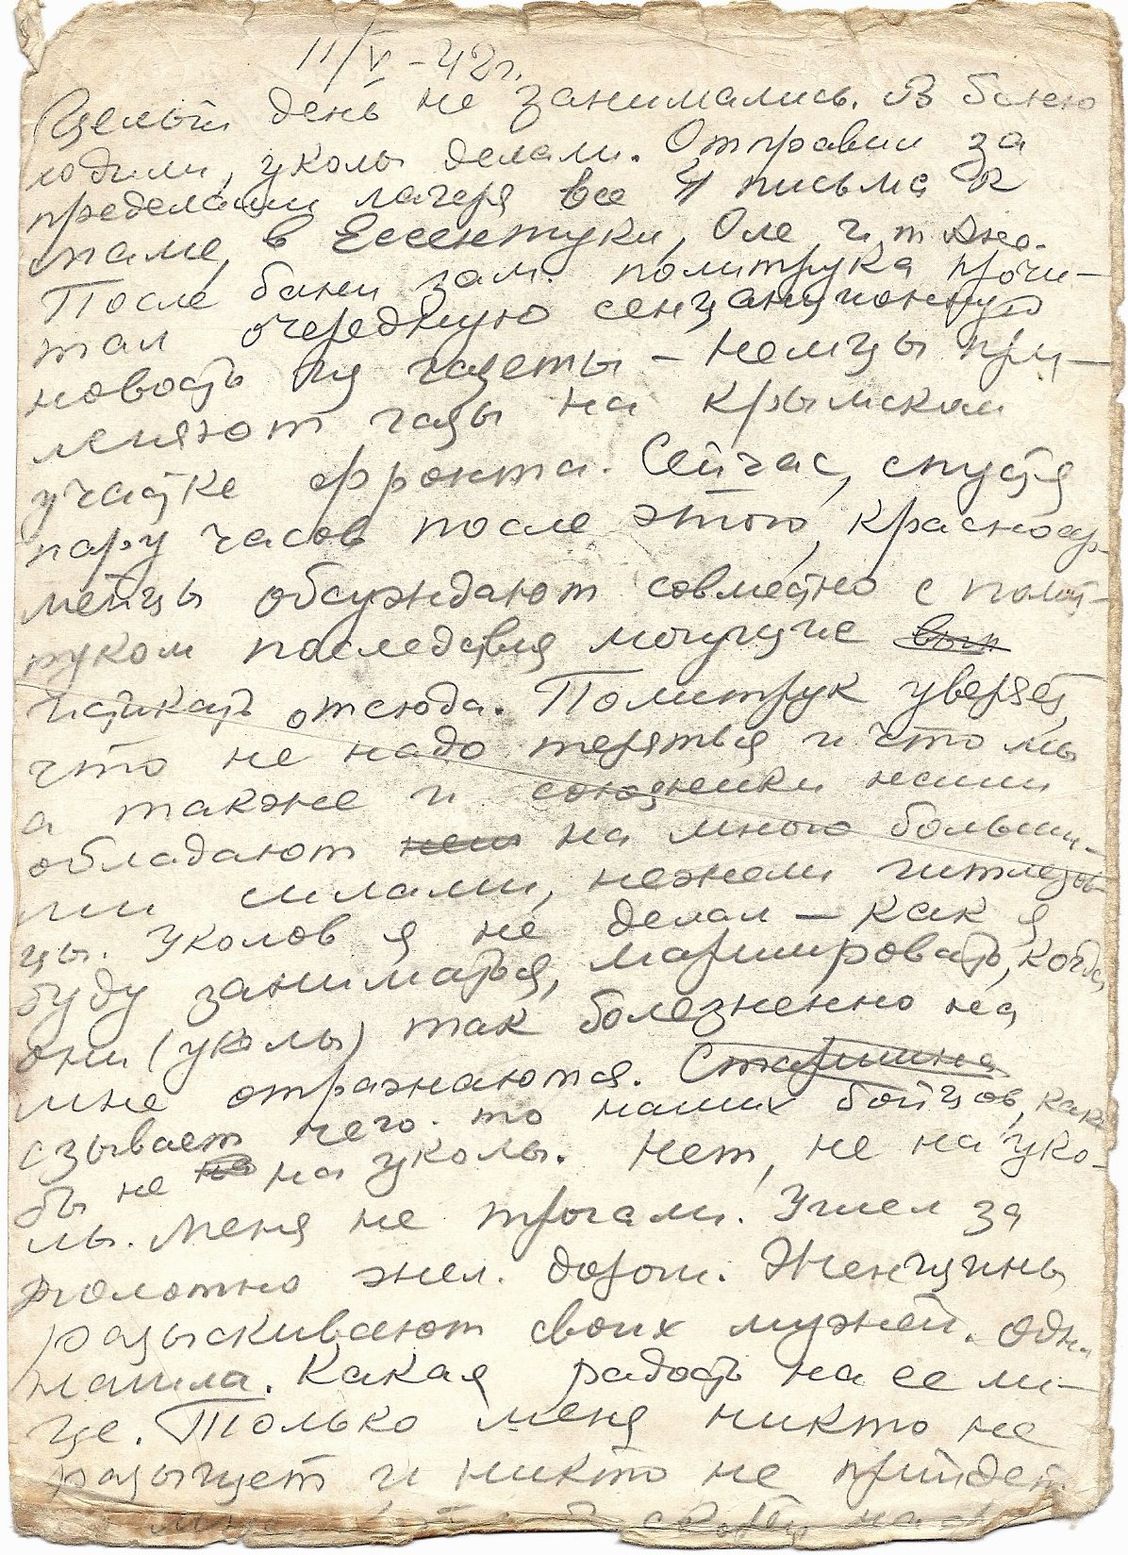 11/V-42г.
Целый день не занимались. В баню
ходили, уколы делали. Отправил за
пределами лагеря все 4 письма к
маме, в Ессентуки, Оле, и т
После бани зам. политрука прочи-
тал очередную сенцанционную
новость из газеты - немцы при-
меняют газы на крымском
участке фронта. Сейчас, спустя
пару часов после этого, красноар-
мейцы обсуждают совместно с полит-
руком последствия могущие вып
истикать отсюда. Политрук уверяет,
что не надо теряться и что мы
а также и союзники наши
обладают нем на много больши-
ми силами, нежели гитлеров-
цы. Уколов я не делал - как я
буду заниматься, маршировать, когда
они (уколы) так болезненно на
мне отражаются. Старшина
сзывает чего-то наших бойцов, как
бы не на на уколы. Нет, не на уко-
лы. Меня не трогали. Ушел за
полотно жел. дорог. Женщины
разыскивают своих мужей. Одна
нашла. Какая радость на ее ли-
це. Только меня никто не
разыщет и никто не прийдет.